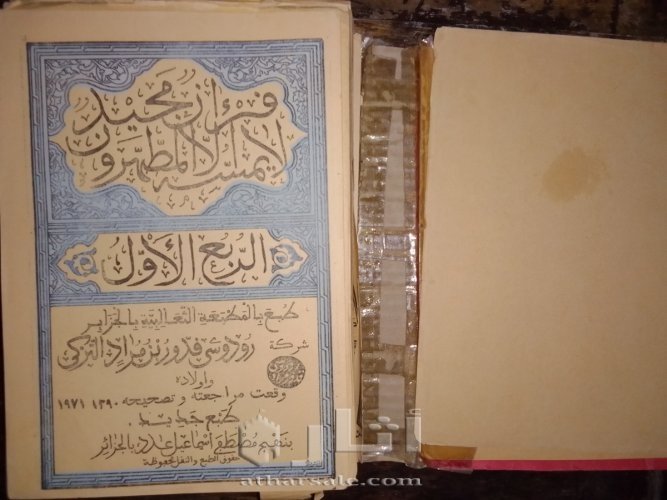 قرءان مجيد
لا يمسه إلا المطهرون
الربع الأول
طبع بالمكتبة الثعالبية بالجزائر
شركة رودوسي قدور بن مراد التركي
وأولاده
وقعت مراجعته وتصحيحه ١٣٩٠ ١٩٧١
طبع جديد.
بتفهيم مصطفى اسماعيل عدد بالجزائر
حقوق الطبع والنقل محفوظة
أثار
atharsale.com